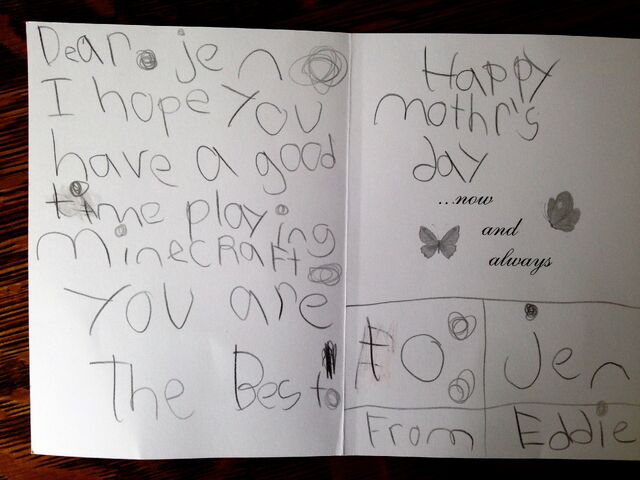 Dear jen
I hope you
have a good
time playing
minecraft
you are
The Best
Happy
mothr's
day
...now
and
always
to Jen
From Eddie